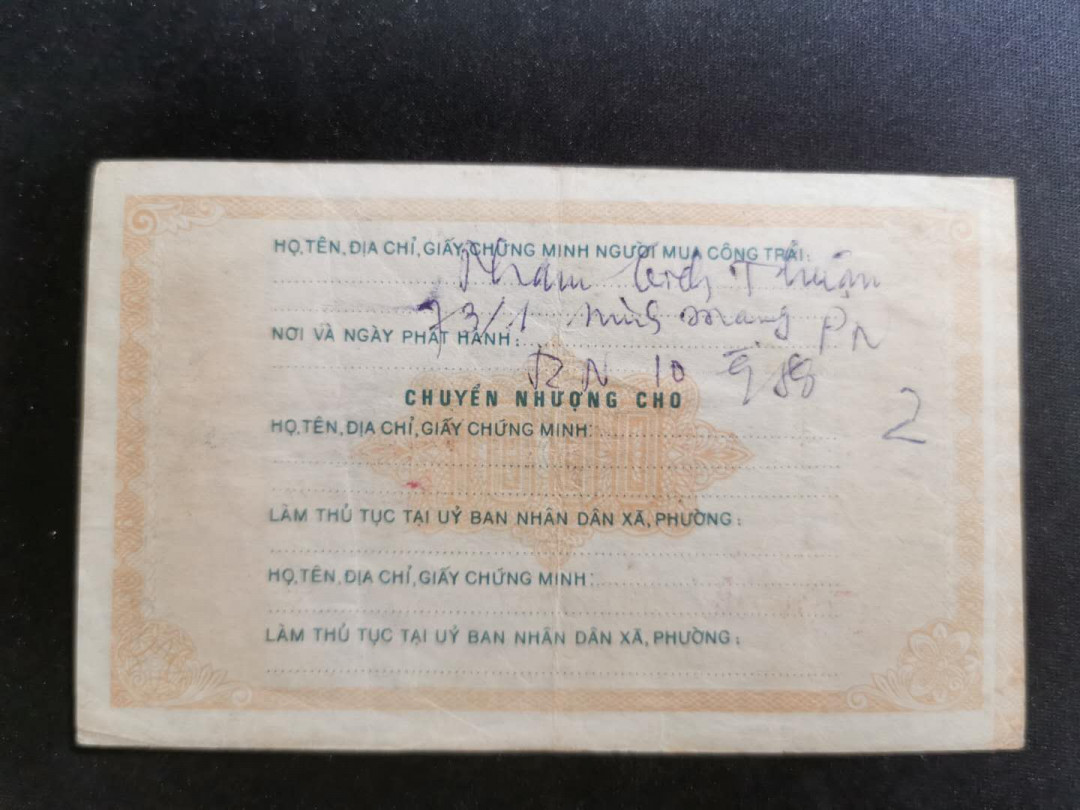 HỌ, TÊN, ĐỊA CHỈ, GIẤY CHỨNG MINH NGƯỜI MUA CÔNG TRÁI:
Phạm Thuận
73/1 Minh Mạng PN
NƠI VÀ NGÀY PHÁT HÀNH:
PN 10 9 88
CHUYỂN NHƯỢNG CHO
2
HỌ, TÊN, ĐỊA CHỈ, GIẤY CHỨNG MINH:
LÀM THỦ TỤC TẠI UỶ BAN NHÂN DÂN XÃ, PHƯỜNG:
HỌ, TÊN, ĐỊA CHỈ, GIẤY CHỨNG MINH:
LÀM THỦ TỤC TẠI UỶ BAN NHÂN DÂN XÃ, PHƯỜNG: